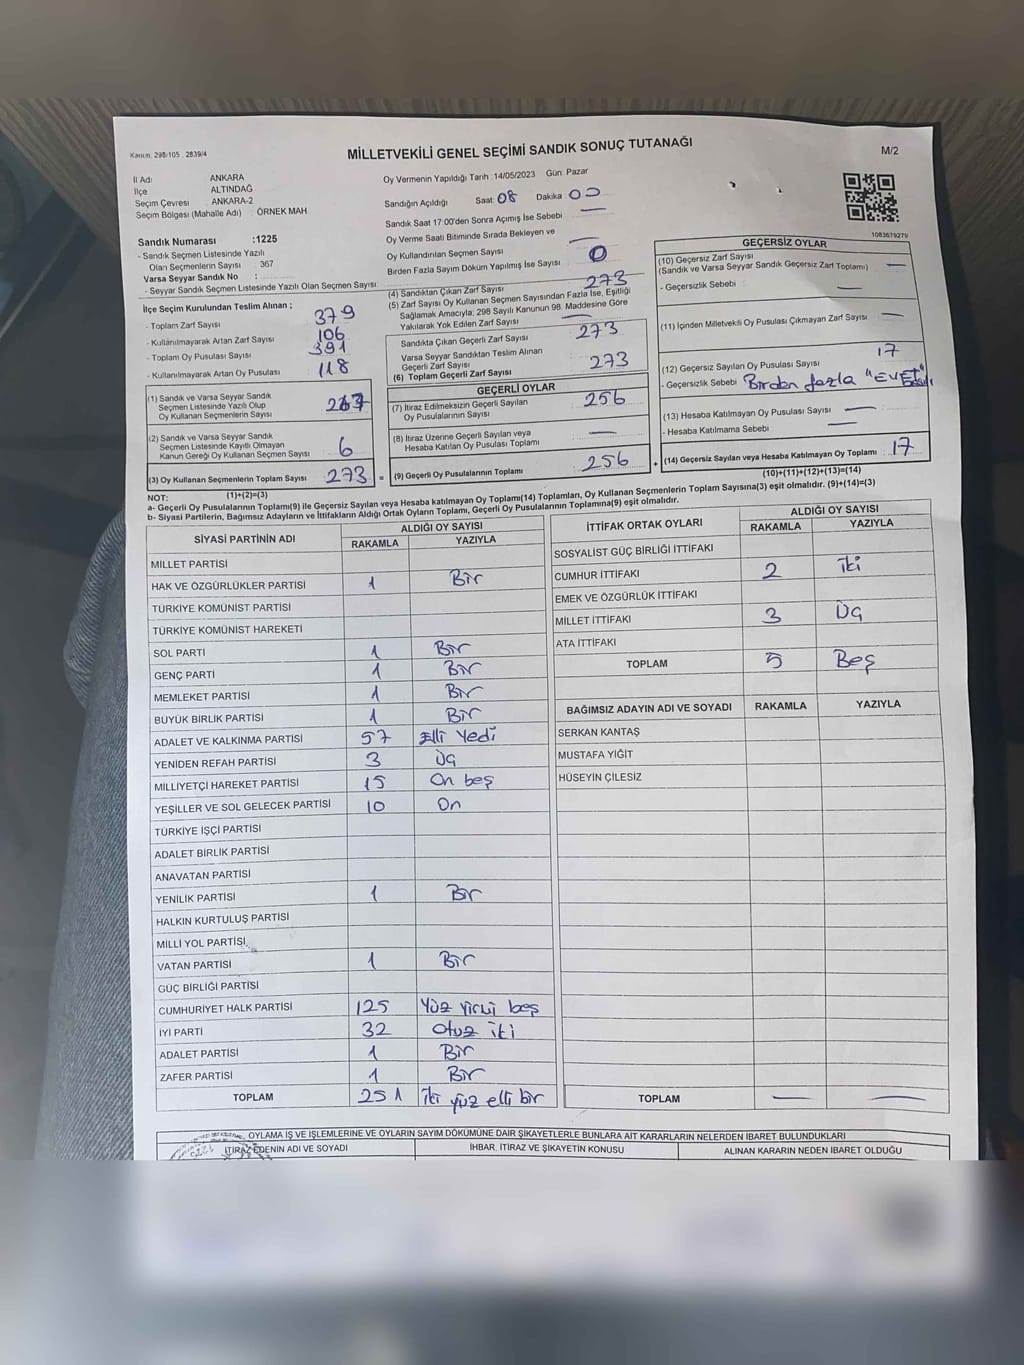 Kanun: 298/105 , 2839/4
MİLLETVEKİLİ GENEL SEÇİMİ SANDIK SONUÇ TUTANAĞI
M/2
İl Adı ANKARA
İlçe ALTINDAĞ
Seçim Çevresi ANKARA-2
Seçim Bölgesi (Mahalle Adı) ÖRNEK MAH.
Oy Vermenin Yapıldığı Tarih :14/05/2023 Gün: Pazar
Sandığın Açıldığı Saat: 08 Dakika 00
Sandık Saat 17:00'den Sonra Açımış İse Sebebi —
Oy Verme Saati Bitiminde Sırada Bekleyen ve
Oy Kullandırılan Seçmen Sayısı —
Birden Fazla Sayım Döküm Yapılmış İse Sayısı 0
1083679279
Sandık Numarası :1225
- Sandık Seçmen Listesinde Yazılı
Olan Seçmenlerin Sayısı : 367
Varsa Seyyar Sandık No :
- Seyyar Sandık Seçmen Listesinde Yazılı Olan Seçmen Sayısı
İlçe Seçim Kurulundan Teslim Alınan ;
- Toplam Zarf Sayısı 379
- Kullanılmayarak Artan Zarf Sayısı 106
- Toplam Oy Pusulası Sayısı 391
- Kullanılmayarak Artan Oy Pusulası 118
(1) Sandık ve Varsa Seyyar Sandık
Seçmen Listesinde Yazılı Olup
Oy Kullanan Seçmenlerin Sayısı 267
(2) Sandık ve Varsa Seyyar Sandık
Seçmen Listesinde Kayıtlı Olmayan
Kanun Gereği Oy Kullanan Seçmen Sayısı 6
(3) Oy Kullanan Seçmenlerin Toplam Sayısı 273 =
(1)+(2)=(3)
(4) Sandıktan Çıkan Zarf Sayısı 273
(5) Zarf Sayısı Oy Kullanan Seçmen Sayısından Fazla İse, Eşitliği
Sağlamak Amacıyla; 298 Sayılı Kanunun 98. Maddesine Göre
Yakılarak Yok Edilen Zarf Sayısı —
Sandıkta Çıkan Geçerli Zarf Sayısı 273
Varsa Seyyar Sandıktan Teslim Alınan
Geçerli Zarf Sayısı
(6) Toplam Geçerli Zarf Sayısı 273
GEÇERLİ OYLAR
(7) İtiraz Edilmeksizin Geçerli Sayılan
Oy Pusulalarının Sayısı 256
(8) İtiraz Üzerine Geçerli Sayılan veya
Hesaba Katılan Oy Pusulası Toplamı —
(9) Geçerli Oy Pusulalarının Toplamı 256 +
GEÇERSİZ OYLAR
(10) Geçersiz Zarf Sayısı
(Sandık ve Varsa Seyyar Sandık Geçersiz Zarf Toplamı) —
- Geçersizlik Sebebi —
(11) İçinden Milletvekili Oy Pusulası Çıkmayan Zarf Sayısı —
(12) Geçersiz Sayılan Oy Pusulası Sayısı 17
- Geçersizlik Sebebi Birden fazla "EVET"
(13) Hesaba Katılmayan Oy Pusulası Sayısı —
- Hesaba Katılmama Sebebi —
(14) Geçersiz Sayılan veya Hesaba Katılmayan Oy Toplamı 17
(10)+(11)+(12)+(13)=(14)
NOT:
a- Geçerli Oy Pusulalarının Toplamı(9) ile Geçersiz Sayılan veya Hesaba katılmayan Oy Toplamı(14) Toplamları, Oy Kullanan Seçmenlerin Toplam Sayısına(3) eşit olmalıdır. (9)+(14)=(3)
b- Siyasi Partilerin, Bağımsız Adayların ve İttifakların Aldığı Ortak Oyların Toplamı, Geçerli Oy Pusulalarının Toplamına(9) eşit olmalıdır.
SİYASİ PARTİNİN ADI ALDIĞI OY SAYISI
RAKAMLA YAZIYLA
MİLLET PARTİSİ
HAK VE ÖZGÜRLÜKLER PARTİSİ 1 Bir
TÜRKİYE KOMÜNİST PARTİSİ
TÜRKİYE KOMÜNİST HAREKETİ
SOL PARTİ 1 Bir
GENÇ PARTİ 1 Bir
MEMLEKET PARTİSİ 1 Bir
BÜYÜK BİRLİK PARTİSİ 1 Bir
ADALET VE KALKINMA PARTİSİ 57 Elli Yedi
YENİDEN REFAH PARTİSİ 3 Üç
MİLLİYETÇİ HAREKET PARTİSİ 15 On beş
YEŞİLLER VE SOL GELECEK PARTİSİ 10 On
TÜRKİYE İŞÇİ PARTİSİ
ADALET BİRLİK PARTİSİ
ANAVATAN PARTİSİ
YENİLİK PARTİSİ 1 Bir
HALKIN KURTULUŞ PARTİSİ
MİLLİ YOL PARTİSİ
VATAN PARTİSİ 1 Bir
GÜÇ BİRLİĞİ PARTİSİ
CUMHURİYET HALK PARTİSİ 125 Yüz Yirmi beş
İYİ PARTİ 32 Otuz iki
ADALET PARTİSİ 1 Bir
ZAFER PARTİSİ 1 Bir
TOPLAM 251 İki yüz elli bir
İTTİFAK ORTAK OYLARI ALDIĞI OY SAYISI
RAKAMLA YAZIYLA
SOSYALİST GÜÇ BİRLİĞİ İTTİFAKI
CUMHUR İTTİFAKI 2 İki
EMEK VE ÖZGÜRLÜK İTTİFAKI
MİLLET İTTİFAKI 3 Üç
ATA İTTİFAKI
TOPLAM 5 Beş
BAĞIMSIZ ADAYIN ADI VE SOYADI RAKAMLA YAZIYLA
SERKAN KANTAŞ
MUSTAFA YİĞİT
HÜSEYİN ÇİLESİZ
TOPLAM — —
OYLAMA İŞ VE İŞLEMLERİNE VE OYLARIN SAYIM DÖKÜMÜNE DAİR ŞİKAYETLERLE BUNLARA AİT KARARLARIN NELERDEN İBARET BULUNDUKLARI
İTİRAZ EDENİN ADI VE SOYADI İHBAR, İTİRAZ VE ŞİKAYETİN KONUSU ALINAN KARARIN NEDEN İBARET OLDUĞU